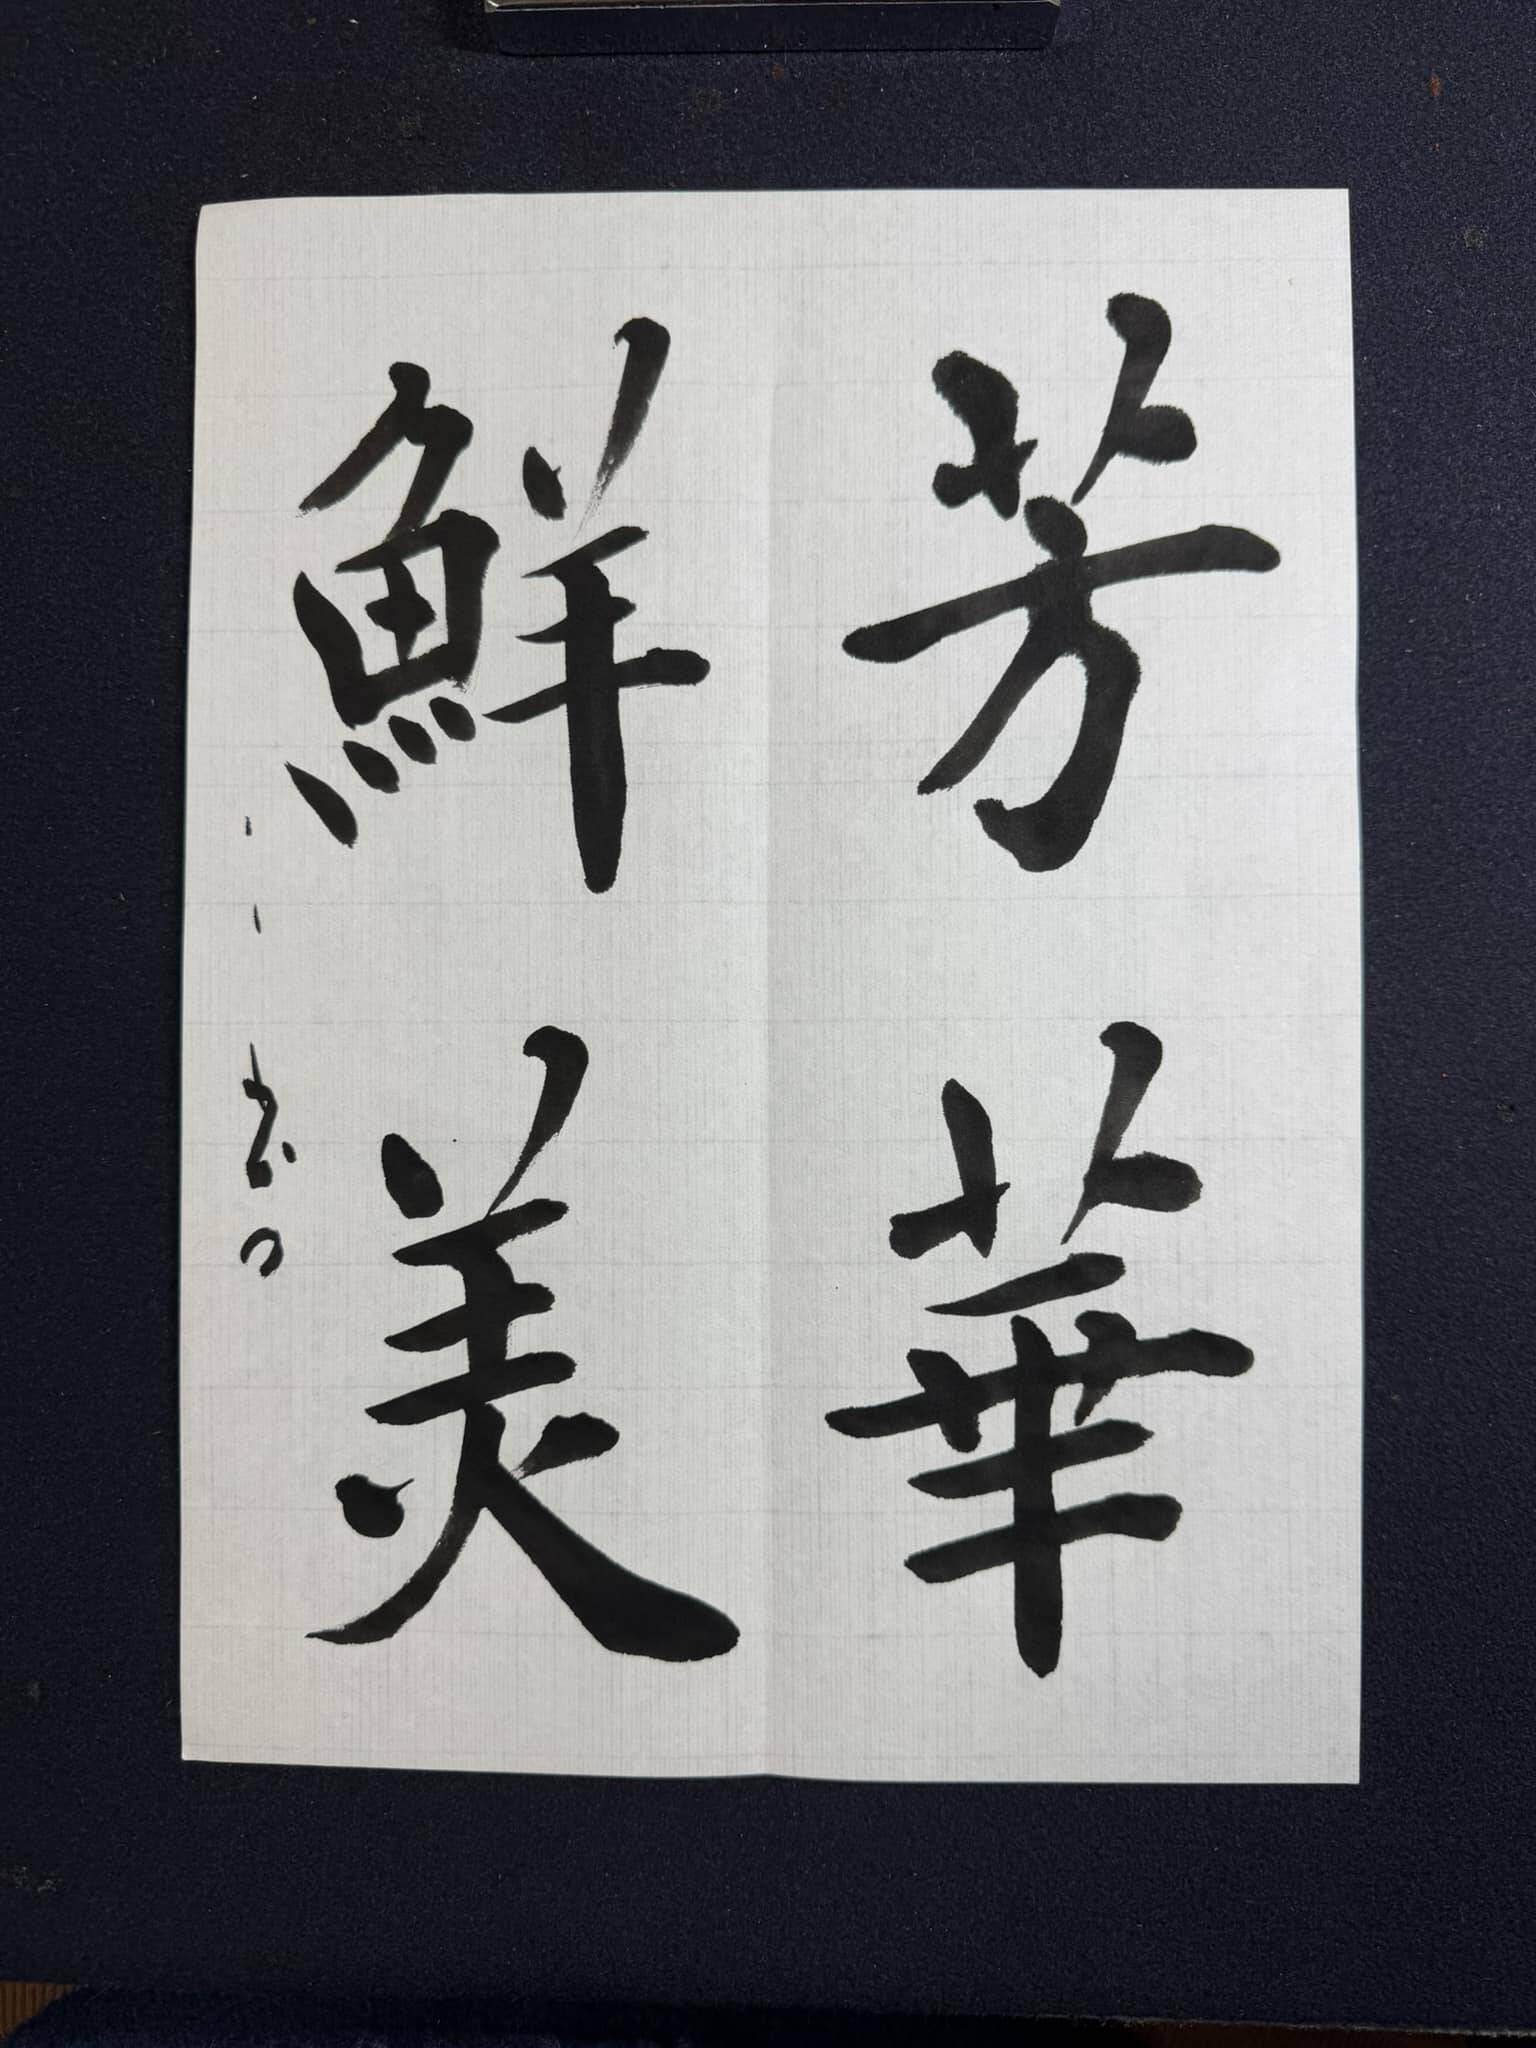 芳華
鮮美